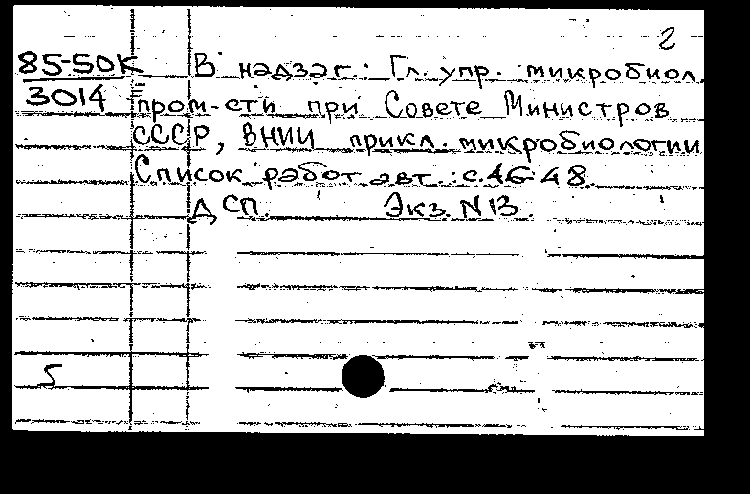 2
85-50К В надзаг: Гл. упр. микробиол.
3014 пром-сти при Совете Министров
СССР, ВНИИ прикл. микробиологии
Список работ авт.: с.46-48
ДСП. Экз. N13.
5